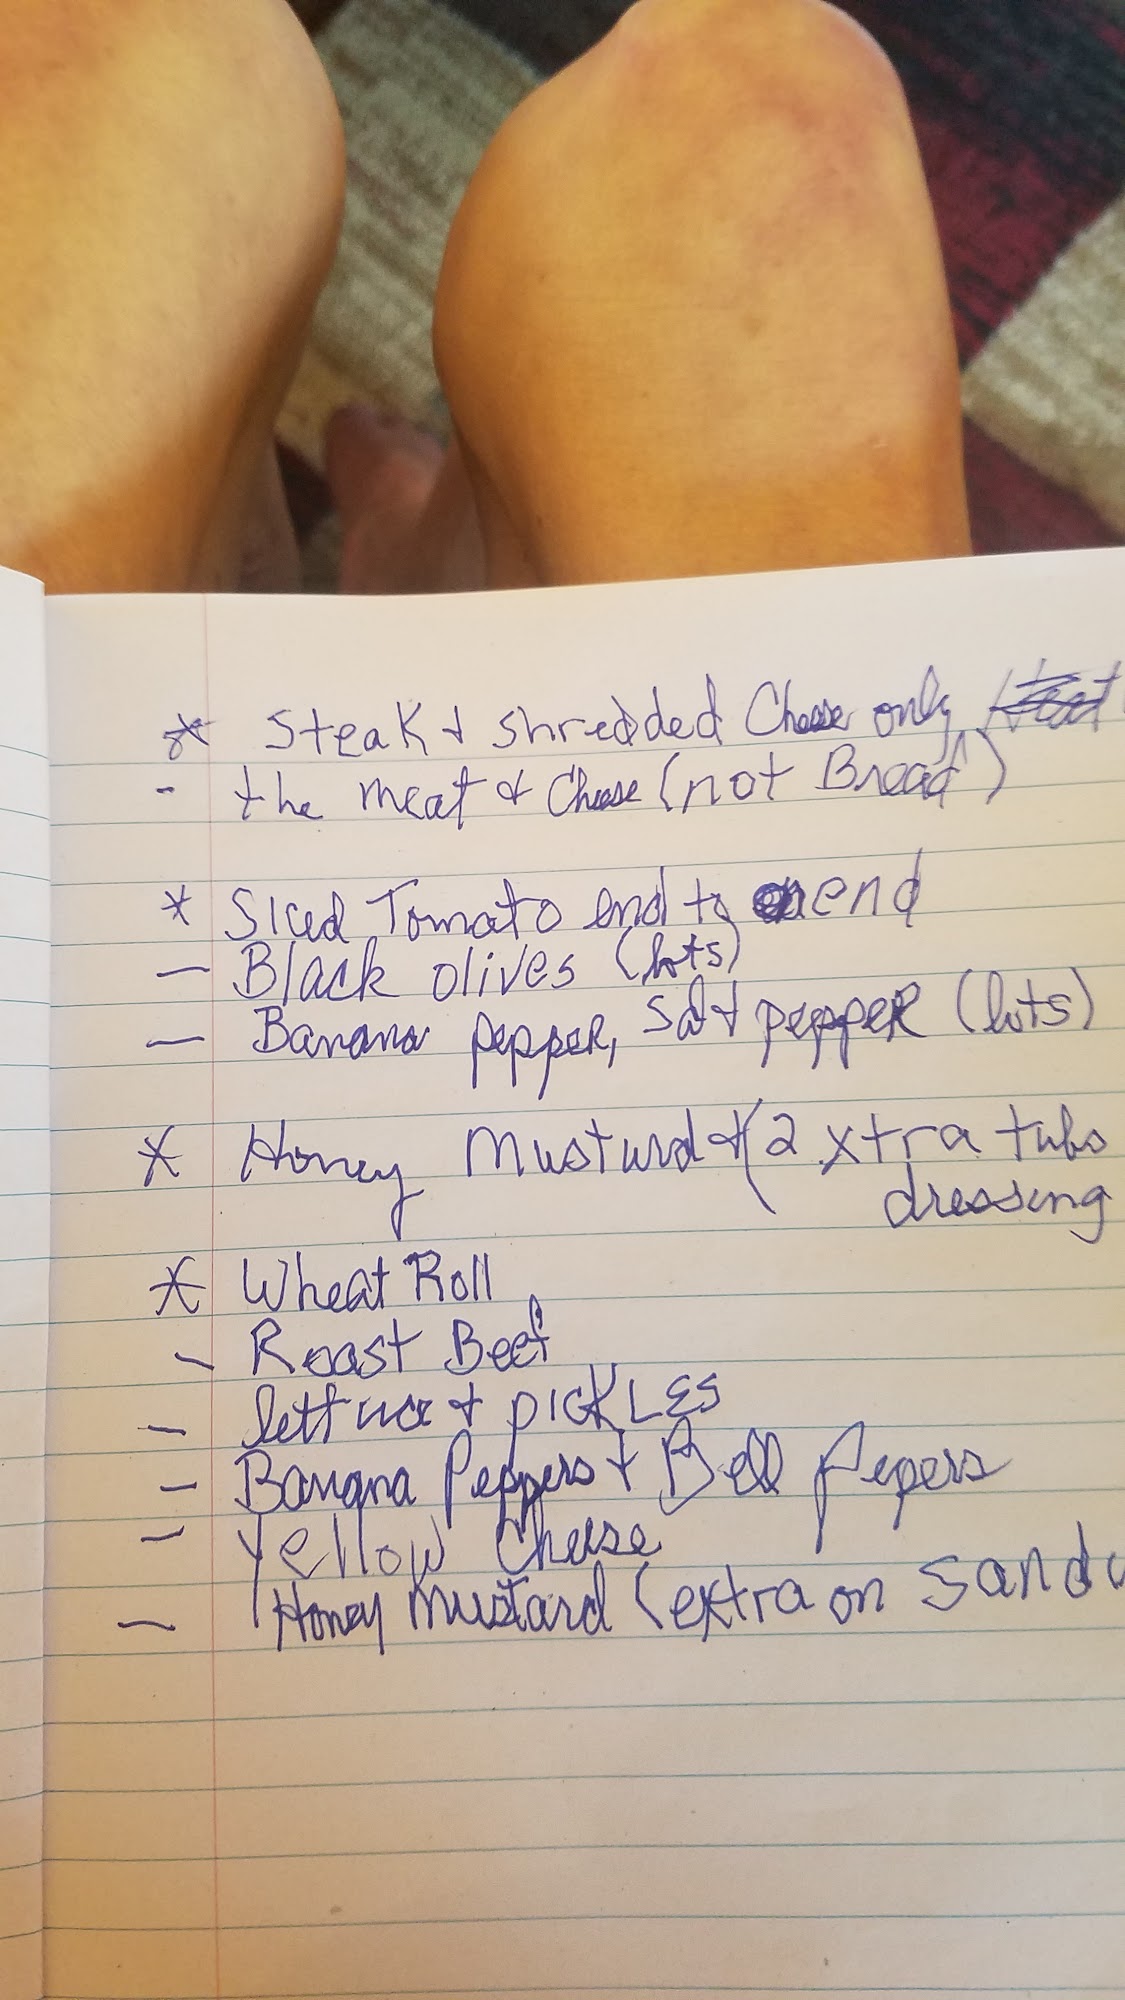 * Steak & shredded Cheese only
- the meat & Cheese (not Bread)
* Sliced Tomato end to end
- Black olives (lots)
- Banana pepper, Salt pepper (lots)
* Honey Musturd & (2 xtra tubs
dressing
* Wheat Roll
- Roast Beef
- lettuce & PICKLES
- Banana Peppers + Bell Pepers
- Yellow Cheese
- Honey Mustard (extra on Sandw